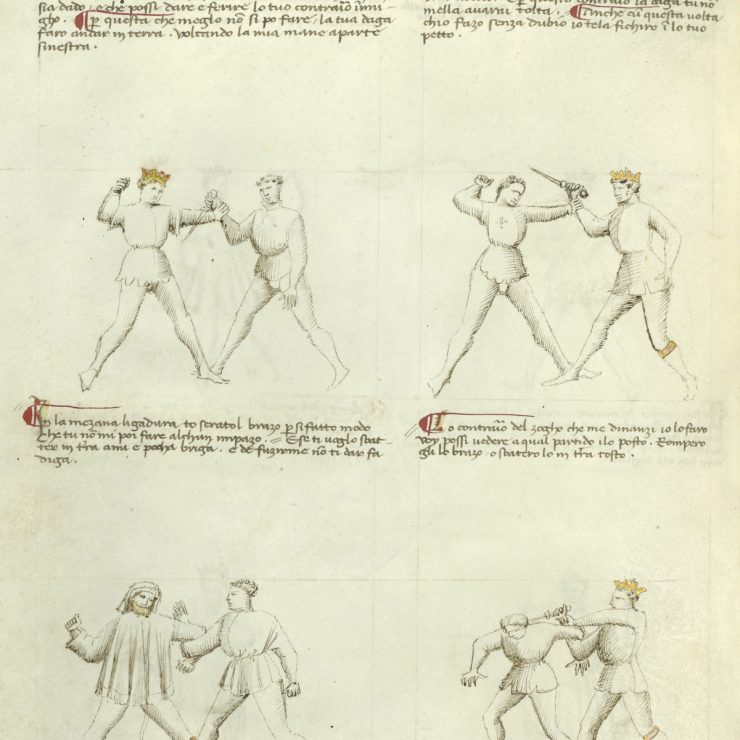 sia dado, e che possi dare e ferire lo tuo contrariō inimi-
gho. ꝑ questa che meglo nō si po fare, la tua daga
faro andar in terra. Voltando la mia mane aparte
sinestra.
contrario la daga tu nō
mella avarai tolta. Anche cū questa volta
chio fazo senza dubio io tela fichirò ī lo tuo
petto.
In la mezana ligadura to seratol brazo ꝑ si fatto modo
Che tu nō mi poi fare alchun impazo. E se ti voglo sbat-
ter in tr̄a ami e pocha briga. e de fuzirme nō ti dar fa
diga.
Lo contrariō del zogho che me dinanzi io lo faro
voy possi vedere a qual partido i lo posto. Rompero
gli lo brazo, o sbatero lo in tr̄a tosto.